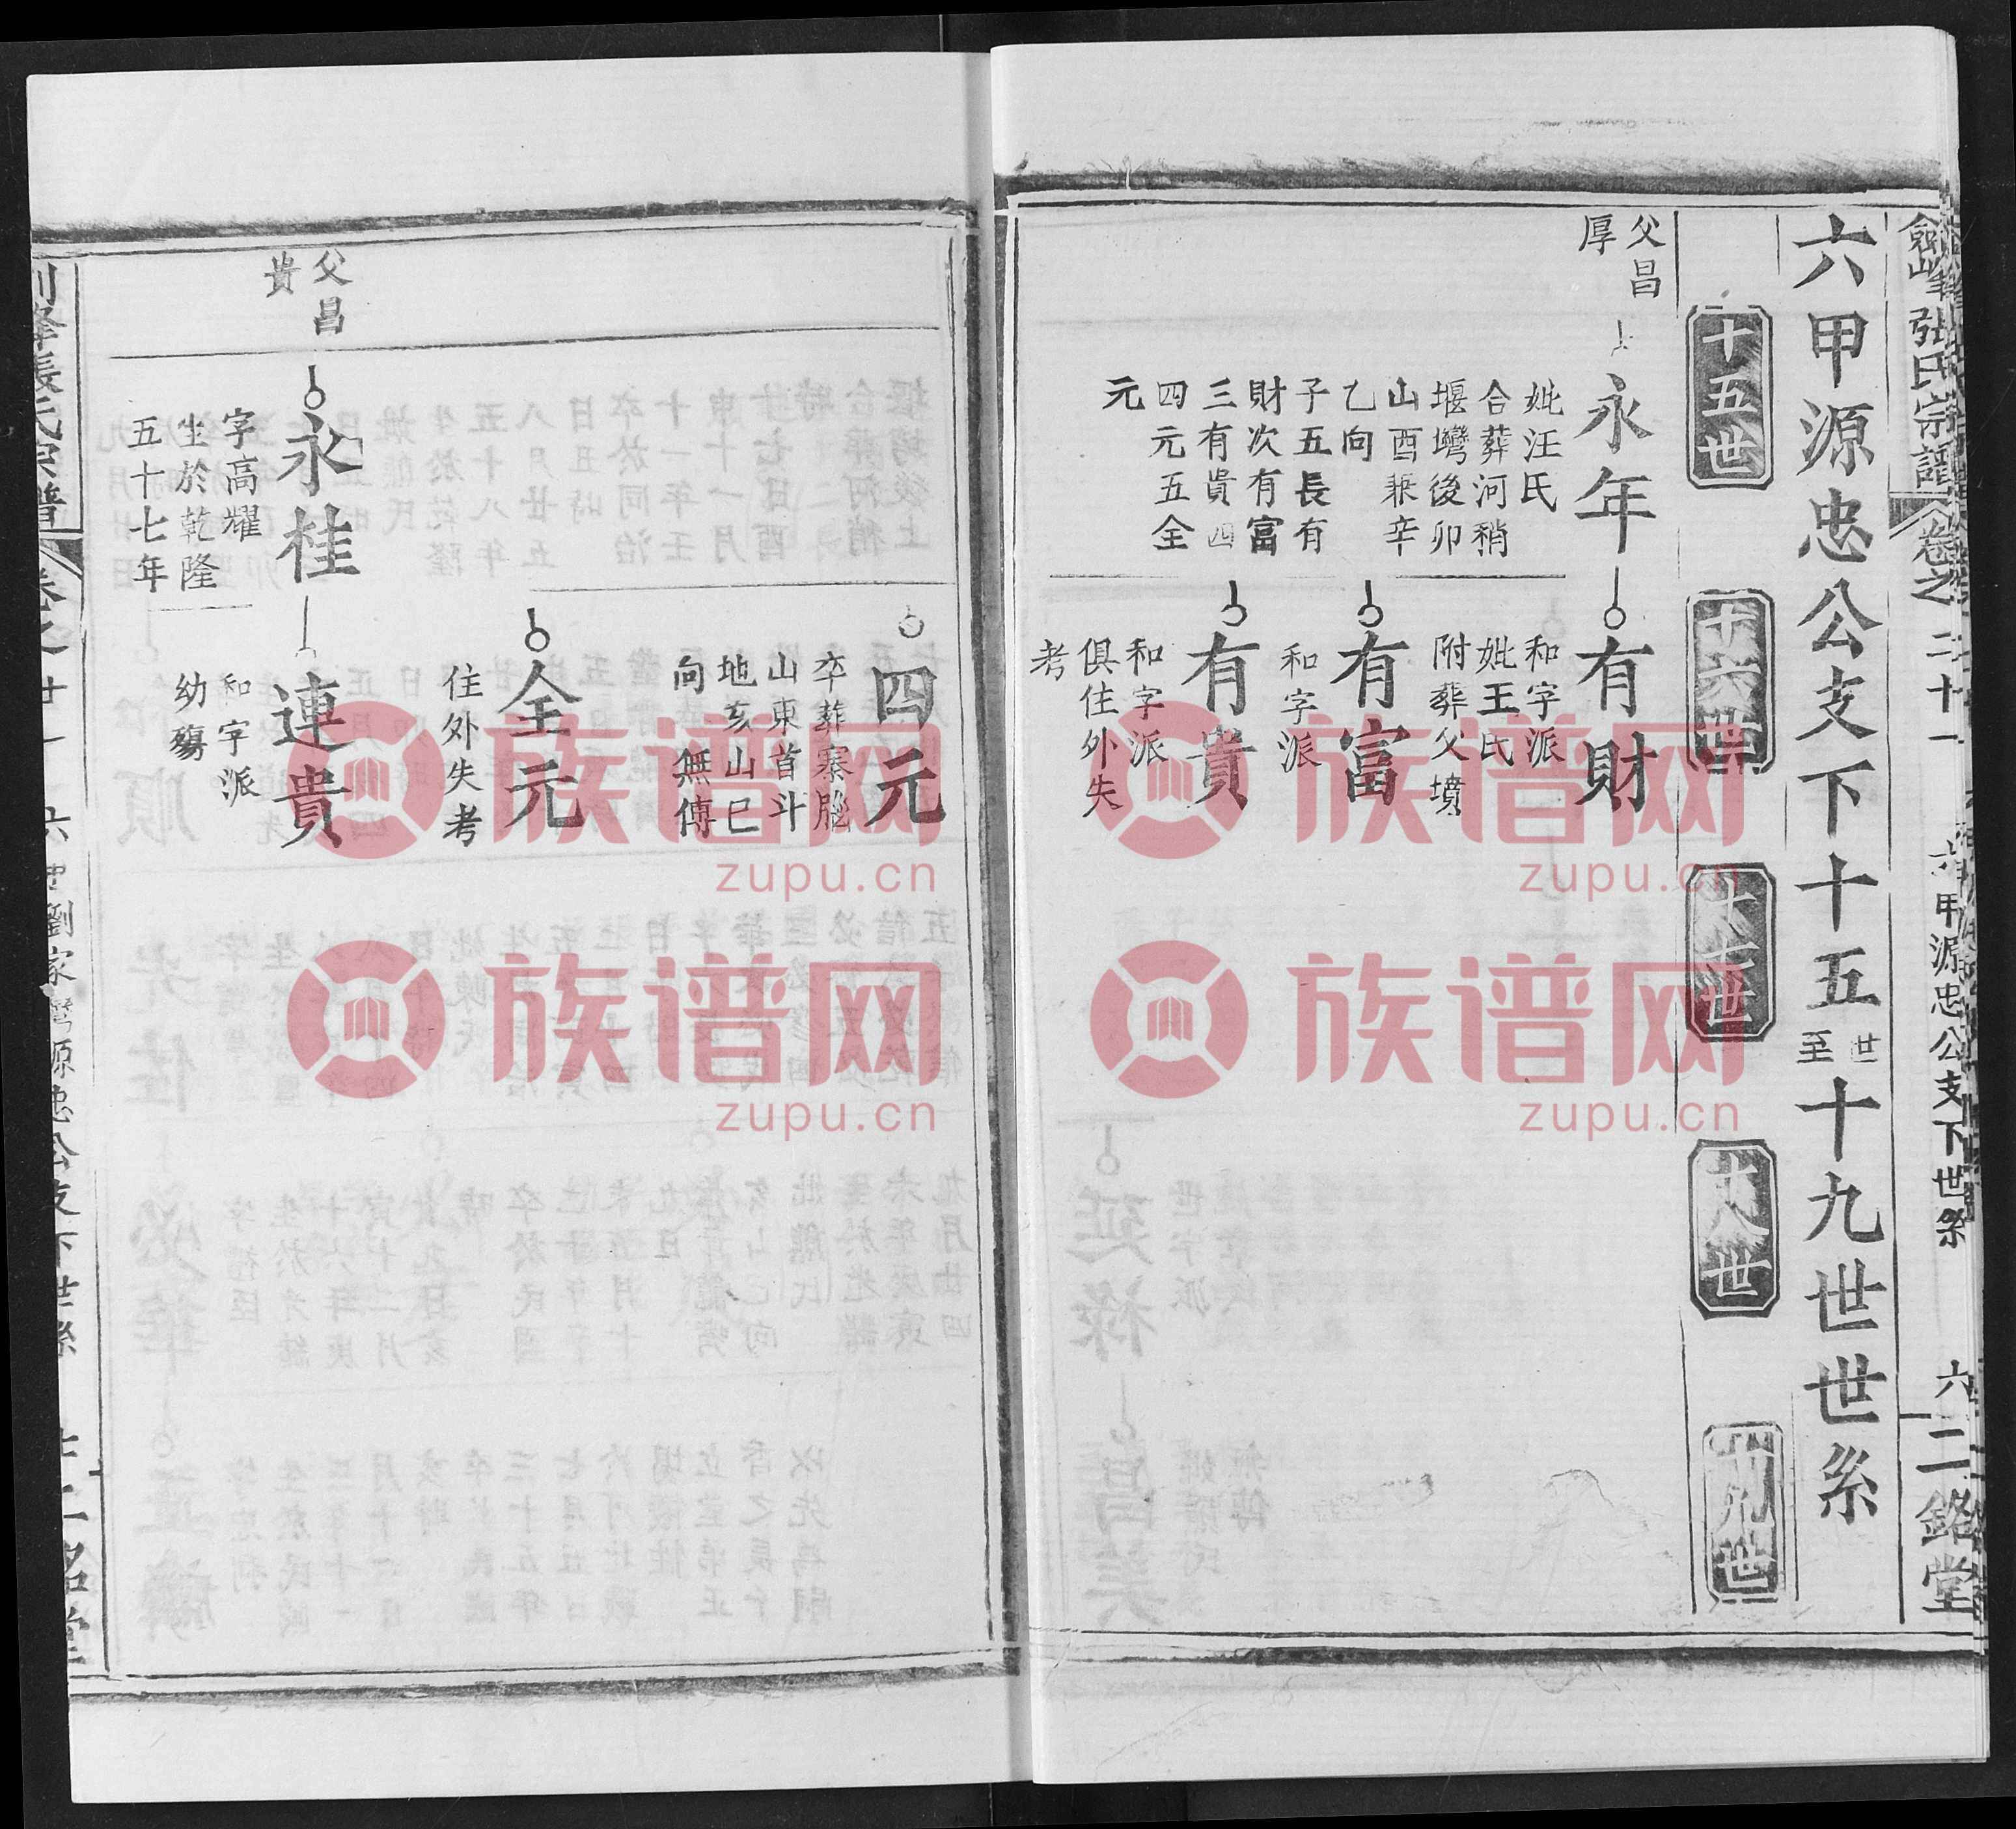 張氏宗譜
卷之二十一
六甲源忠公支下世系
六
二銘堂
六甲源忠公支下十五世至十九世世系
十五世
十六世
十七世
十八世
十九世
父昌
厚
永年
妣汪氏
合葬河稍
堰壪後卯
山酉兼辛
乙向
子五長有
財次有富
三有貴四
四元五全
元
有財
和字派
妣王氏
附葬父墳
有富
和字派
有貴
和字派
俱住外失
考
四元
卒葬寨腦
山東首斗
地亥山巳
向 無傳
全元
住外失考
父昌
貴
永桂
字高耀
生於乾隆
五十七年
連貴
和字派
幼殤
族谱网
zupu.cn
族谱网
zupu.cn
族谱网
zupu.cn
族谱网
zupu.cn